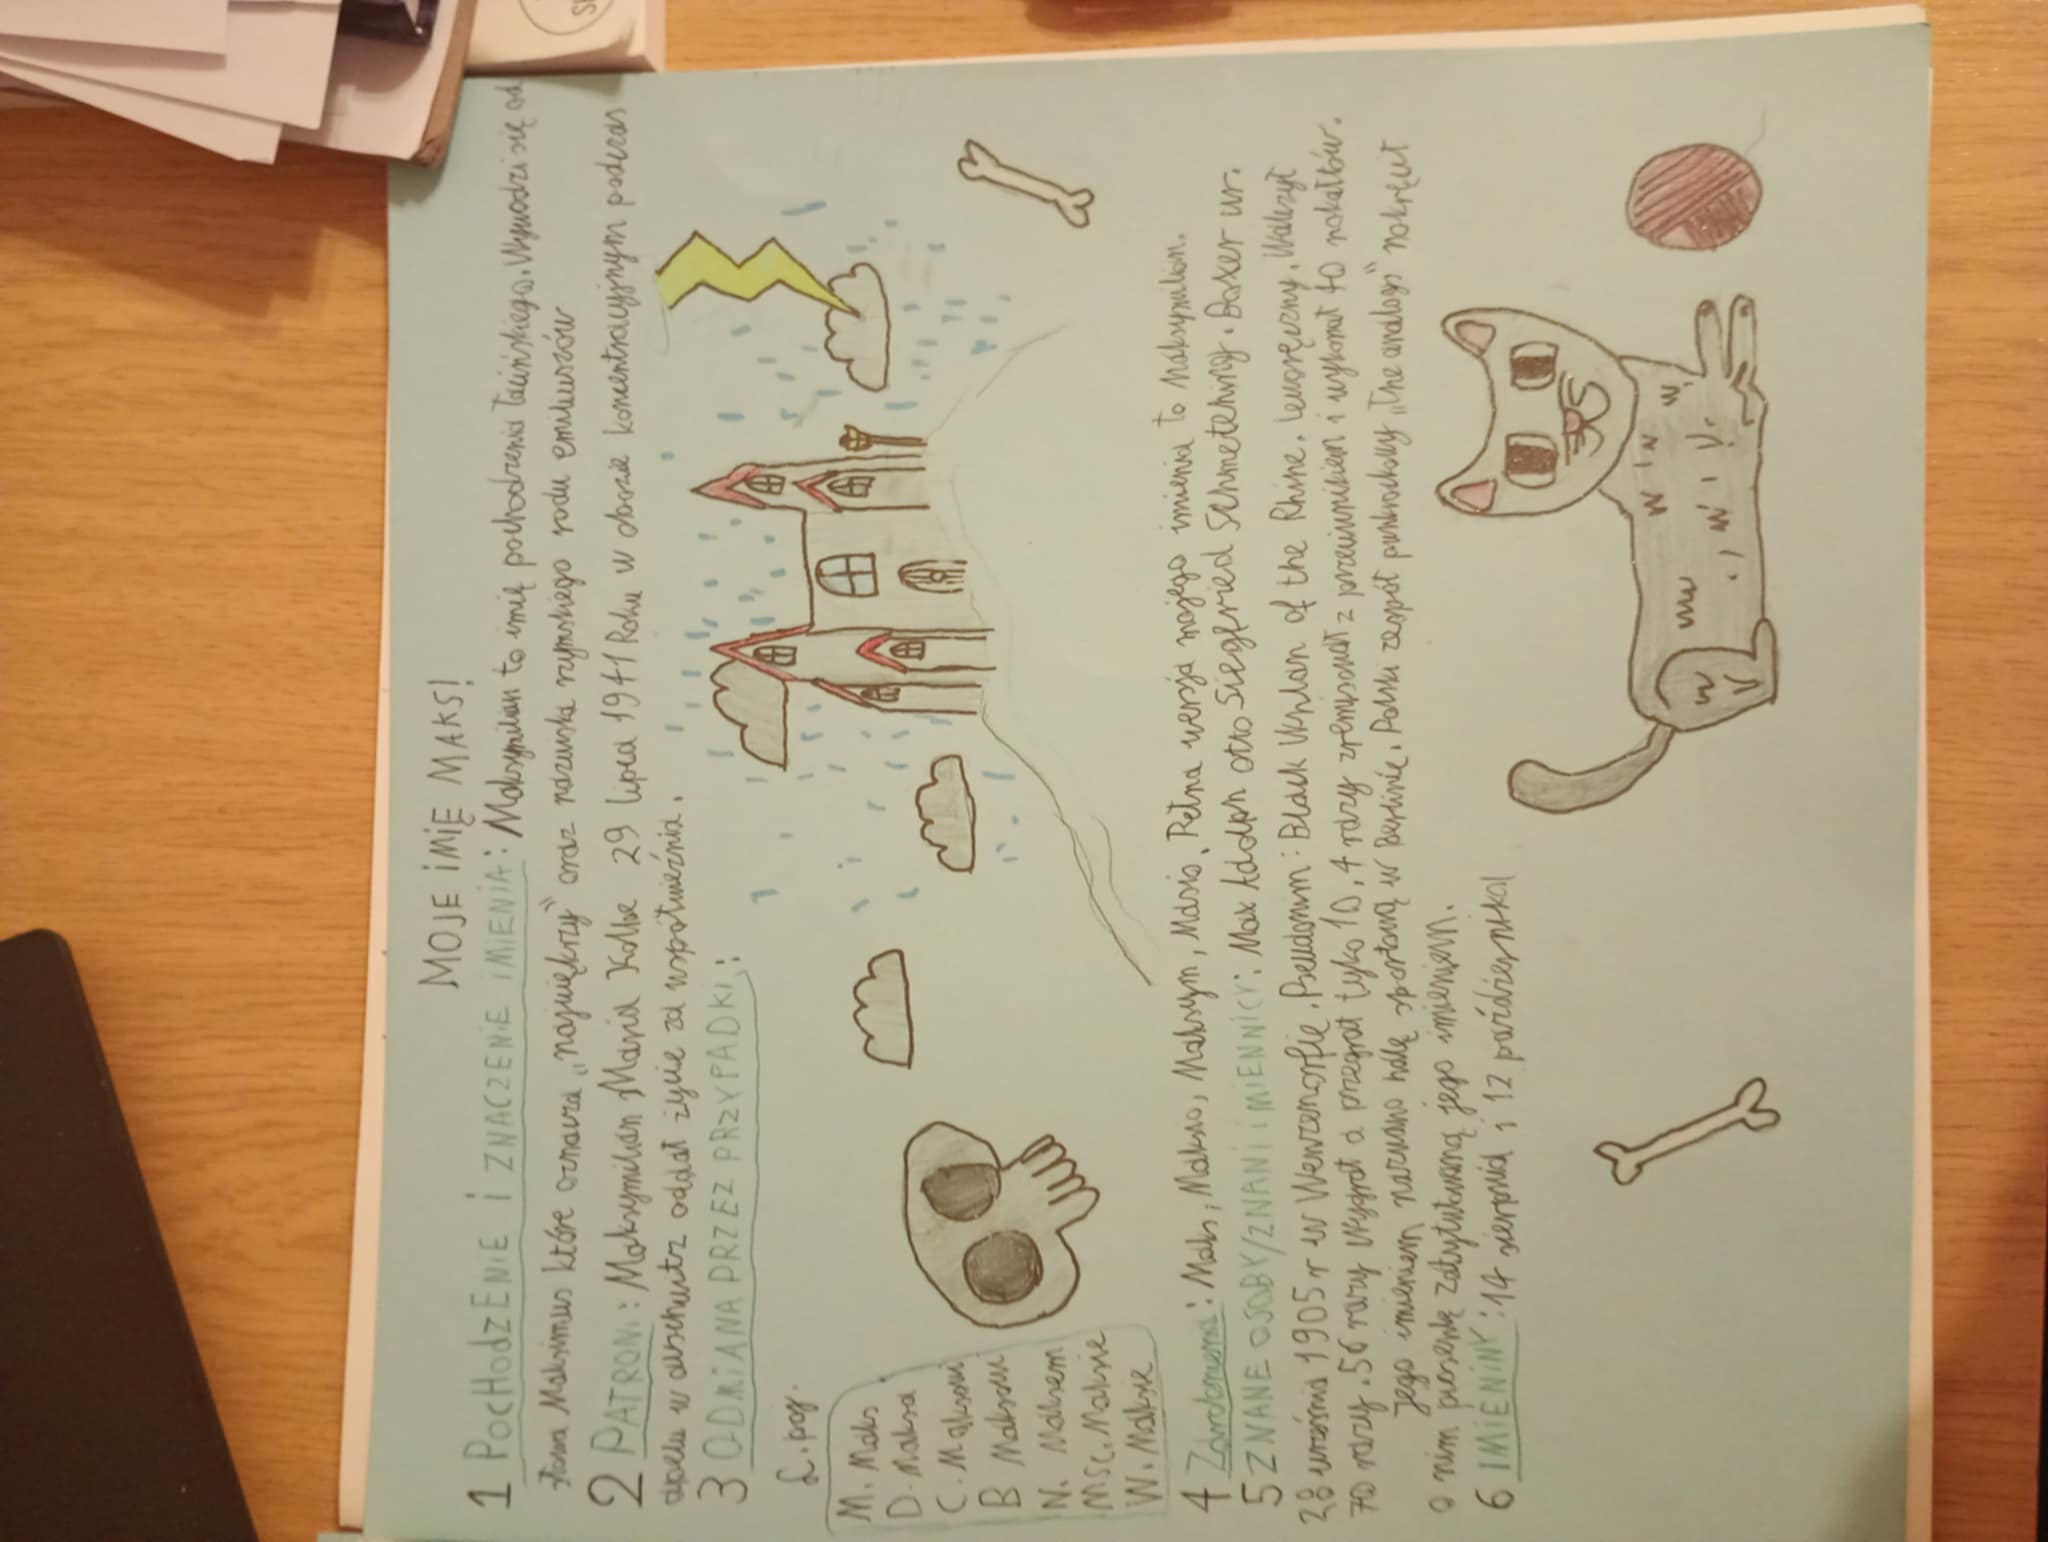 MOJE IMIĘ MAKS!
1 POCHODZENIE I ZNACZENIE IMIENIA: Maksymilian to imię pochodzenia łacińskiego. Wywodzi się od
słowa Maksimus które oznacza „największy” oraz nazwiska rzymskiego rodu emiliuszów
2 PATRON: Maksymilian Maria Kolbe 29 lipca 1941 Roku w obozie koncentracyjnym podczas
apelu w auschwitz oddał życie za współwięźnia.
3 ODMIANA PRZEZ PRZYPADKI:
L. poj.
M. Maks
D. Maksa
C. Maksowi
B Maksa
N. Maksem
MSC. Maksie
W. Maksie
4 Zdrobnienia: Maks, Maksio, Maksym, Masio, Pełna wersja mojego imienia to Maksymilian.
5 ZNANE OSOBY/ZNANI IMIENNICY: Max Adolph otto Siegfried Schmeterling. Boxer ur.
28 września 1905 r w Pseudonim: Black Uhlan of the Rhine. Leworęczny. Walczył
70 razy. 56 razy wygrał a przegrał tyko 10, 4 razy zremisował z przeciwnikiem i wykonał 10 nokałtów.
Jego imieniem nazwano halę sportową w Berlinie. Polski zespół punkrockowy „The analogs” nakręcił
o nim piosenkę zatytułowaną jego imieniem.
6 IMIENINY: 14 sierpnia i 12 października